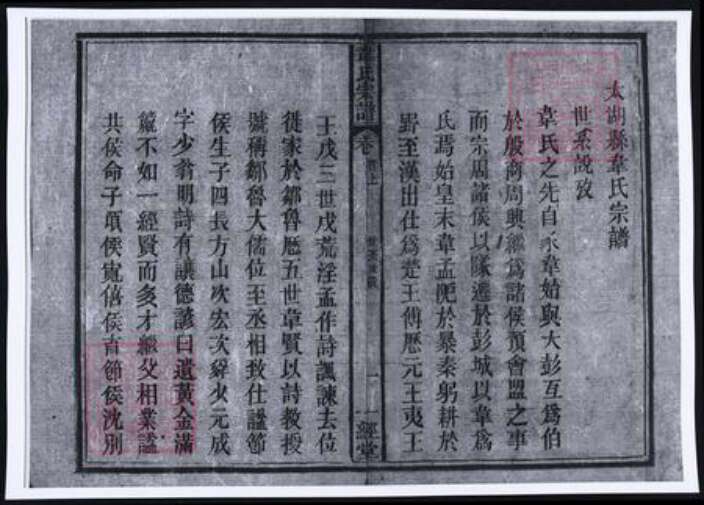 太湖縣韋氏宗譜
世系說攷
韋氏之先自豕韋始與大彭互爲伯
於殷商周興繼爲諸侯預會盟之事
而宗周諸侯以隊遷於彭城以韋爲
氏焉始皇末韋孟阨於暴秦躬耕於
野至漢出仕爲楚王傅歷元王夷王
韋氏宗譜
卷
首上
一
一經堂
王戊三世戊荒淫孟作詩諷諫去位
徙家於鄒魯歷五世韋賢以詩教授
號稱鄒魯大儒位至丞相致仕諡節
侯生子四長方山次宏次舜少元成
字少翁明詩有讓德諺曰遺黃金滿
籯不如一經賢而多才繼父相業諡
共侯命子頃侯寬僖侯育節侯沈別